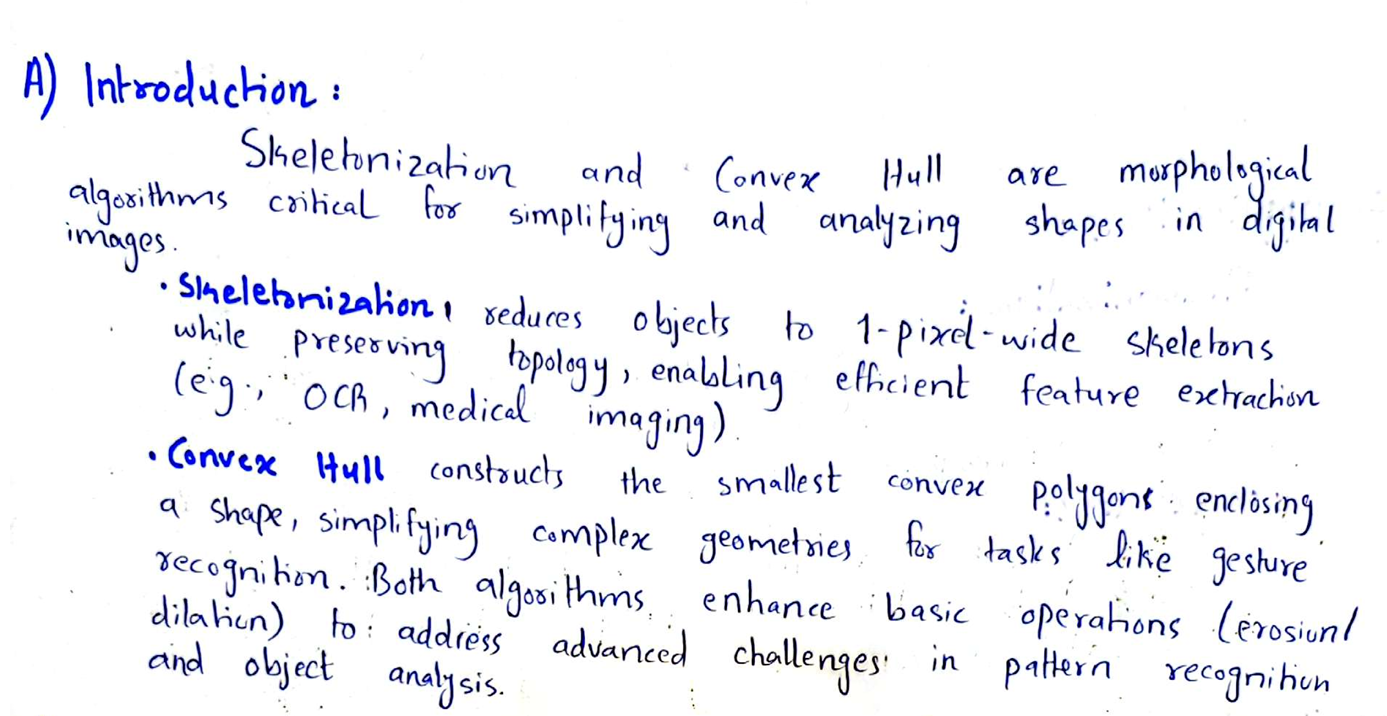 A) Introduction :
Skeletonization and Convex Hull are morphological
algorithms critical for simplifying and analyzing shapes in digital
images.
• Skeletonization, reduces objects to 1-pixel-wide skeletons
while preserving topology, enabling efficient feature extraction
(e.g., OCR, medical imaging).
• Convex Hull constructs the smallest convex polygons enclosing
a shape, simplifying complex geometries for tasks like gesture
recognition. Both algorithms enhance basic operations (erosion/
dilation) to address advanced challenges in pattern recognition
and object analysis.